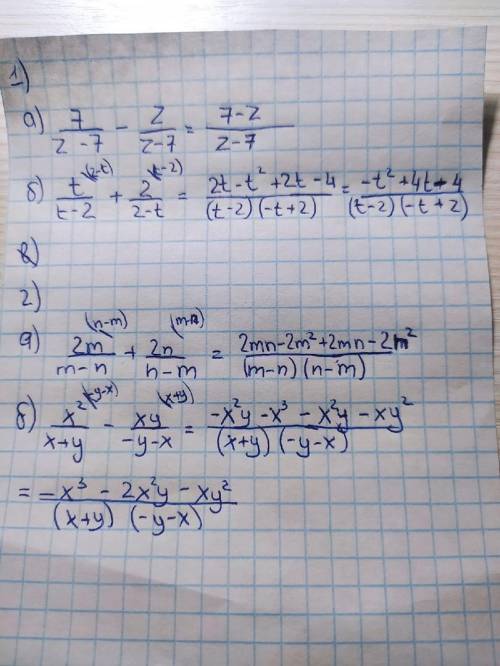 1)
а) 7/(z-7) - z/(z-7) = (7-z)/(z-7)
б) t^(2-t)/(t-2) + 2^(t-2)/(2-t) = (2t-t²+2t-4)/((t-2)(-t+2)) = (-t²+4t-4)/((t-2)(-t+2))
в)
2)
а) 2m^(n-m)/(m-n) + 2n^(m-n)/(n-m) = (2mn-2m²+2mn-2n²)/((m-n)(n-m))
б) x²^(-y-x)/(x+y) - xy^(x+y)/(-y-x) = (-x²y-x³-x²y-xy²)/((x+y)(-y-x))
= (-x³-2x²y-xy²)/((x+y)(-y-x))